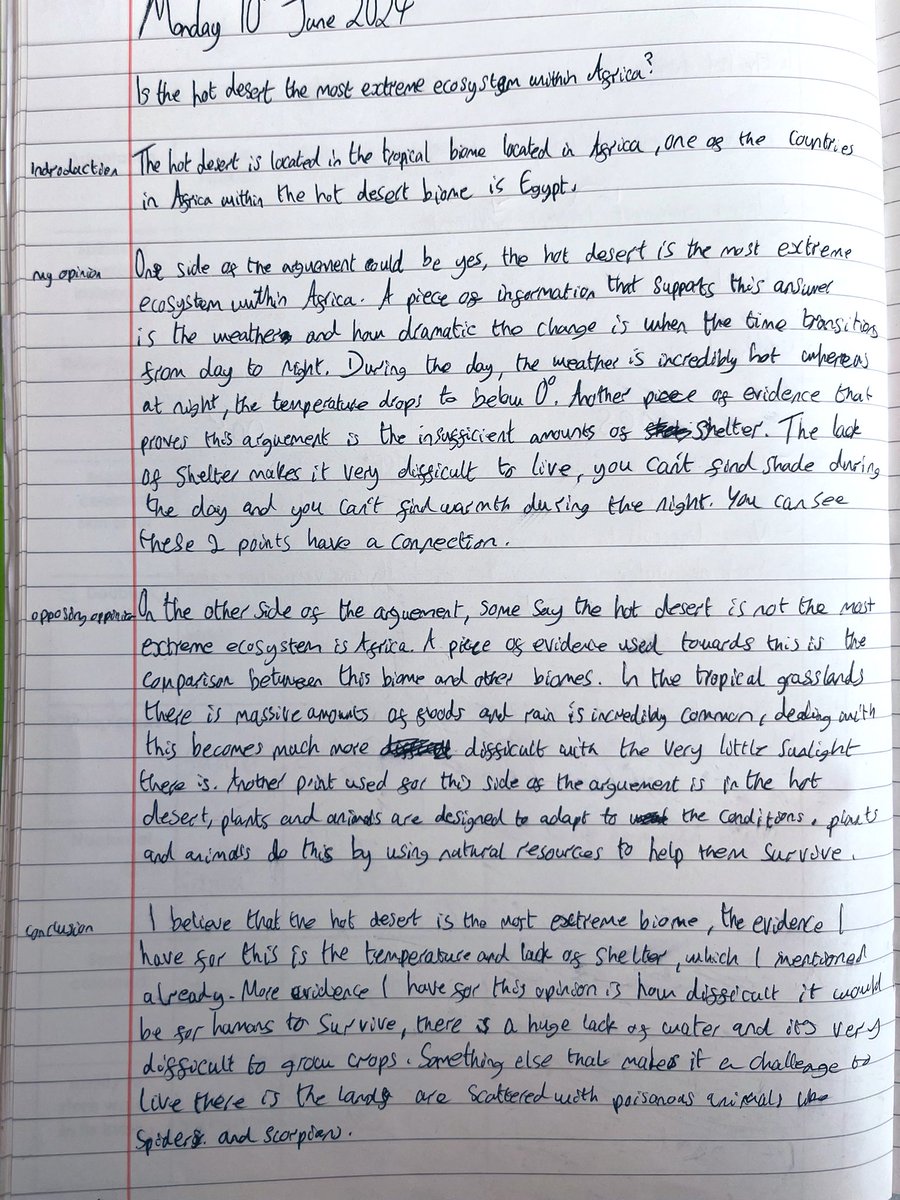 Monday 10th June 2024
Is the hot desert the most extreme ecosystem within Africa?
Indroduction The hot desert is located in the tropical biome located in Africa, one of the countries
in Africa within the hot desert biome is Egypt.
my opinion One side of the arguement could be yes, the hot desert is the most extreme
ecosystem within Africa. A piece of information that supports this answer
is the weather and how dramatic the change is when the time transitions
from day to night. During the day, the weather is incredibly hot whereas
at night, the temperature drops to below 0°. Another piece of evidence that
proves this arguement is the insufficient amounts of shelter. The lack
of shelter makes it very difficult to live, you can't find shade during
the day and you can't find warmth during the night. You can see
these 2 points have a connection.
opposing opinion On the other side of the arguement, some say the hot desert is not the most
extreme ecosystem is Africa. A piece of evidence used towards this is the
comparison between this biome and other biomes. In the tropical grasslands
there is massive amounts of floods and rain is incredibly common, dealing with
this becomes much more difficult with the very little sunlight
there is. Another point used for this side of the arguement is in the hot
desert, plants and animals are designed to adapt to the conditions. plants
and animals do this by using natural resources to help them survive.
conclusion I believe that the hot desert is the most extreme biome, the evidence I
have for this is the temperature and lack of shelter, which I mentioned
already. More evidence I have for this opinion is how difficult it would
be for humans to survive, there is a huge lack of water and it's very
difficult to grow crops. Something else that makes it a challenge to
live there is the lands are scattered with poisonous animals like
spiders and scorpian.